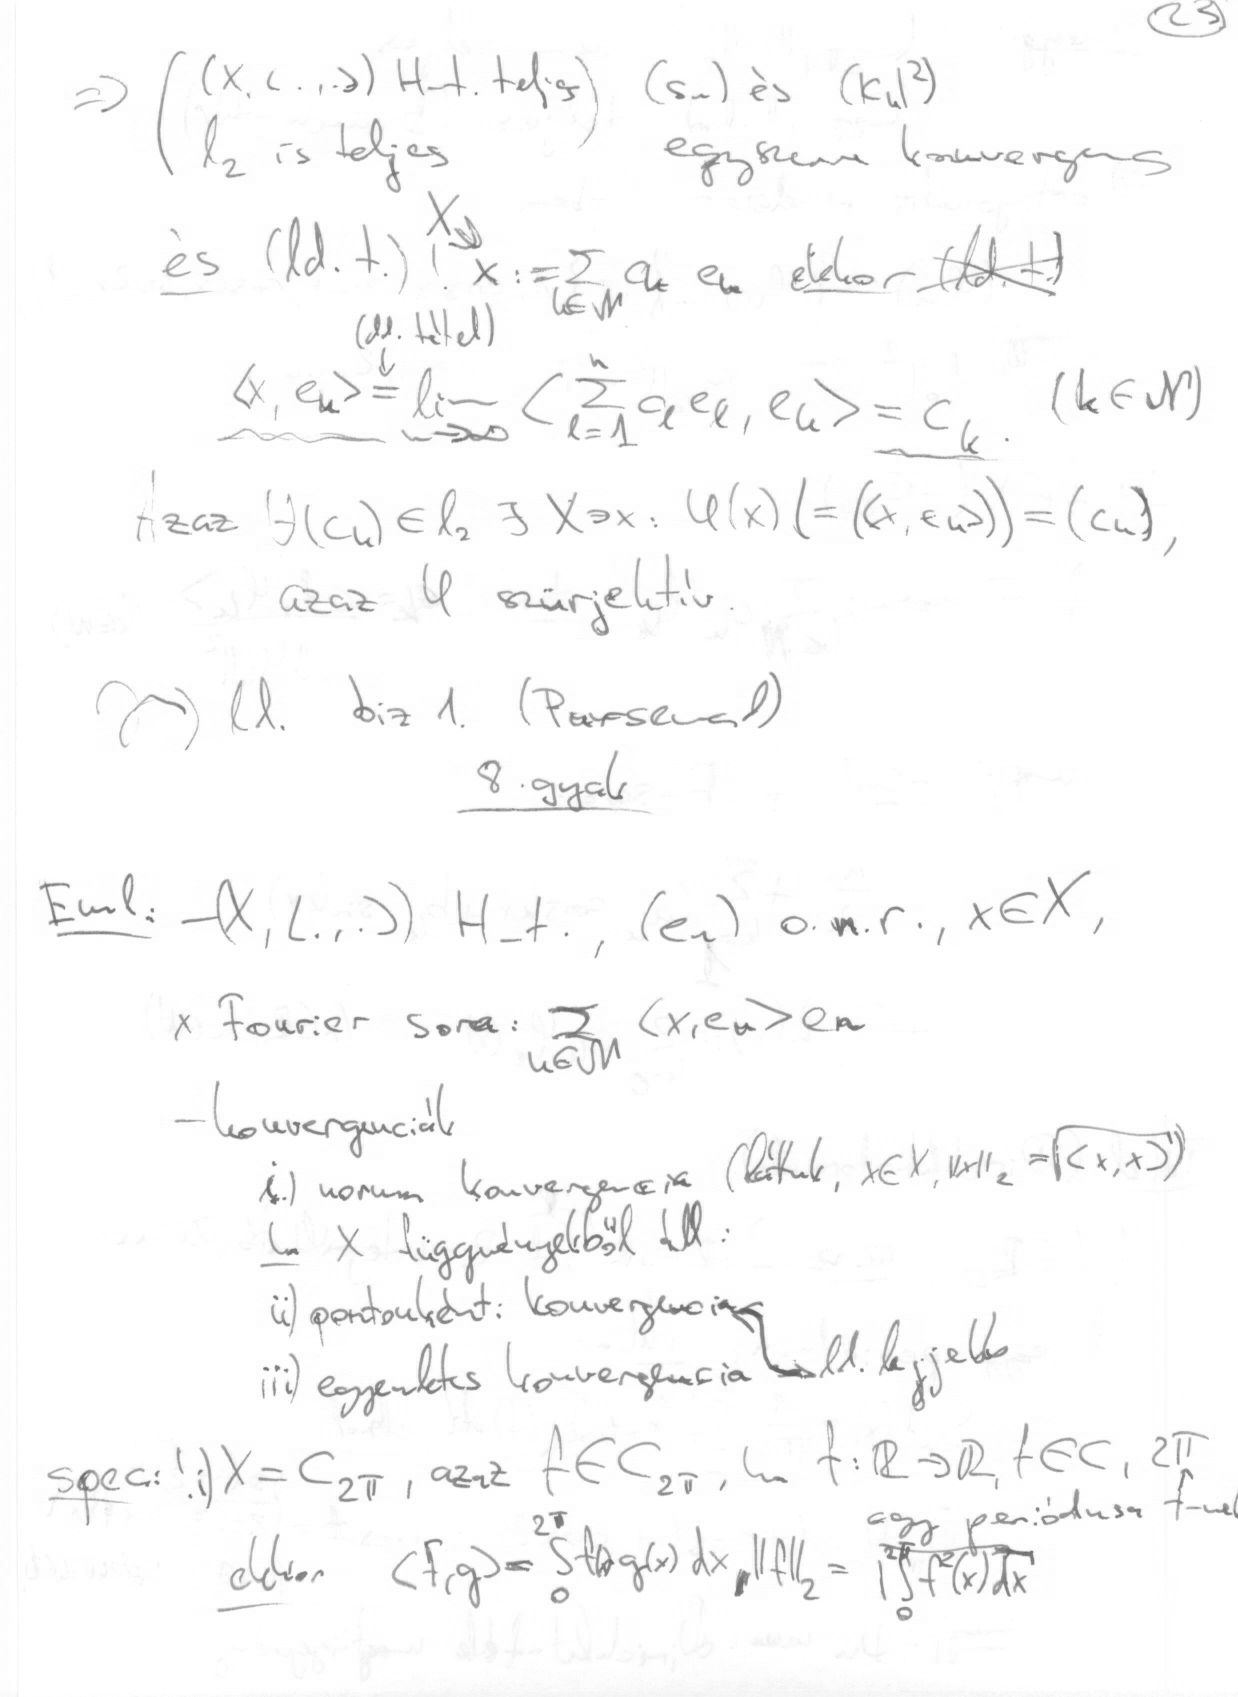 23
⇒ ( (X, <.,.>) H-t. teljes ) (sₙ) és (|cₖ|²)
l₂ is teljes egyszerre konvergens
és (ld. t.) ! X∋ x := Σ_{k∈ℕ} cₖ eₖ ekkor (ld. t.)
(ld. tétel)
<x, eₖ> = lim_{n→∞} < Σ_{l=1}^{n} cₗ eₗ, eₖ > = cₖ. (k∈ℕ)
Azaz ∀(cₖ) ∈ l₂ ∃ X∋x: φ(x) (=(<x, eₖ>)) = (cₖ),
azaz φ szürjektív.
ld. biz 1. (Parseval)
8. gyak
Eml: -(X, <.,.>) H-t., (eₙ) o.n.r., x∈X,
x Fourier sora: Σ_{n∈ℕ} <x, eₙ> eₙ
- konvergenciák
i.) norma konvergencia (láttuk, x∈X, ||x||₂ = √<x,x>)
ha X függvényekből áll:
ii) pontonkénti konvergencia
iii) egyenletes konvergencia → ld. lejjebb
spec: !i) X = C_{2π}, azaz f∈C_{2π}, ha f: ℝ→ℝ, f∈C, 2π
egy periódusa f-nek
ekkor <f,g> = ∫_0^{2π} f(x) g(x) dx, ||f||₂ = √(∫_0^{2π} f²(x) dx)